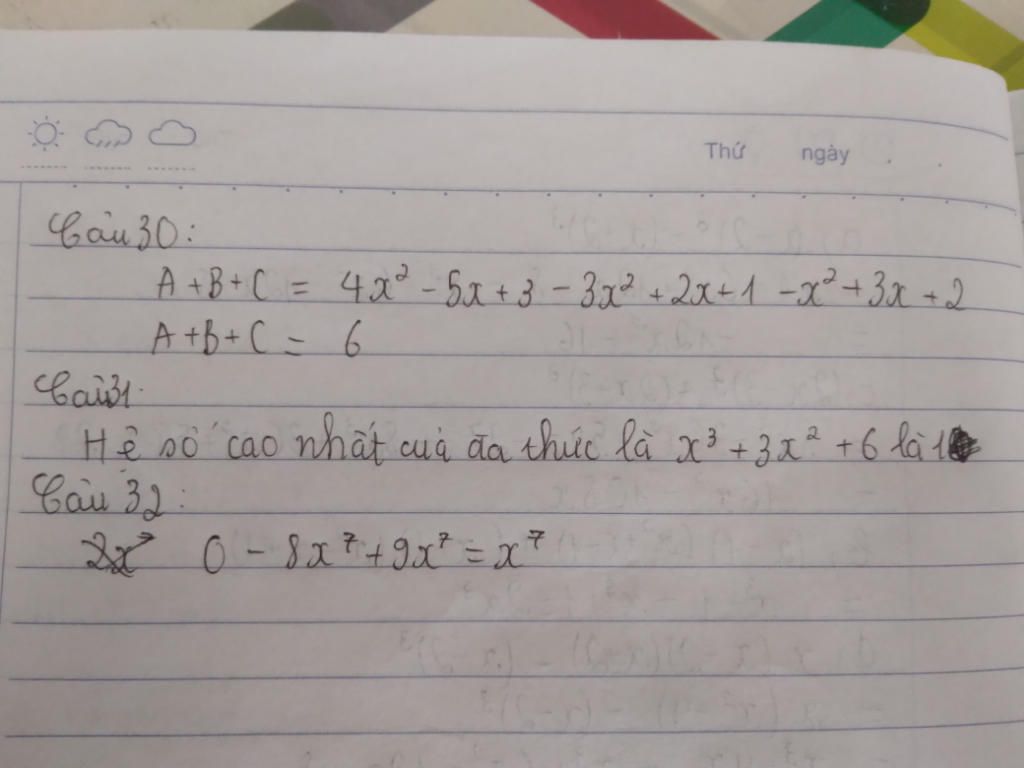 Thứ ngày
Câu 30:
A+B+C = 4x² - 5x + 3 - 3x² + 2x + 1 - x² + 3x + 2
A+B+C = 6
Câu 31.
Hệ số cao nhất của đa thức là x³ + 3x² + 6 là 1
Câu 32:
0 - 8x⁷ + 9x⁷ = x⁷